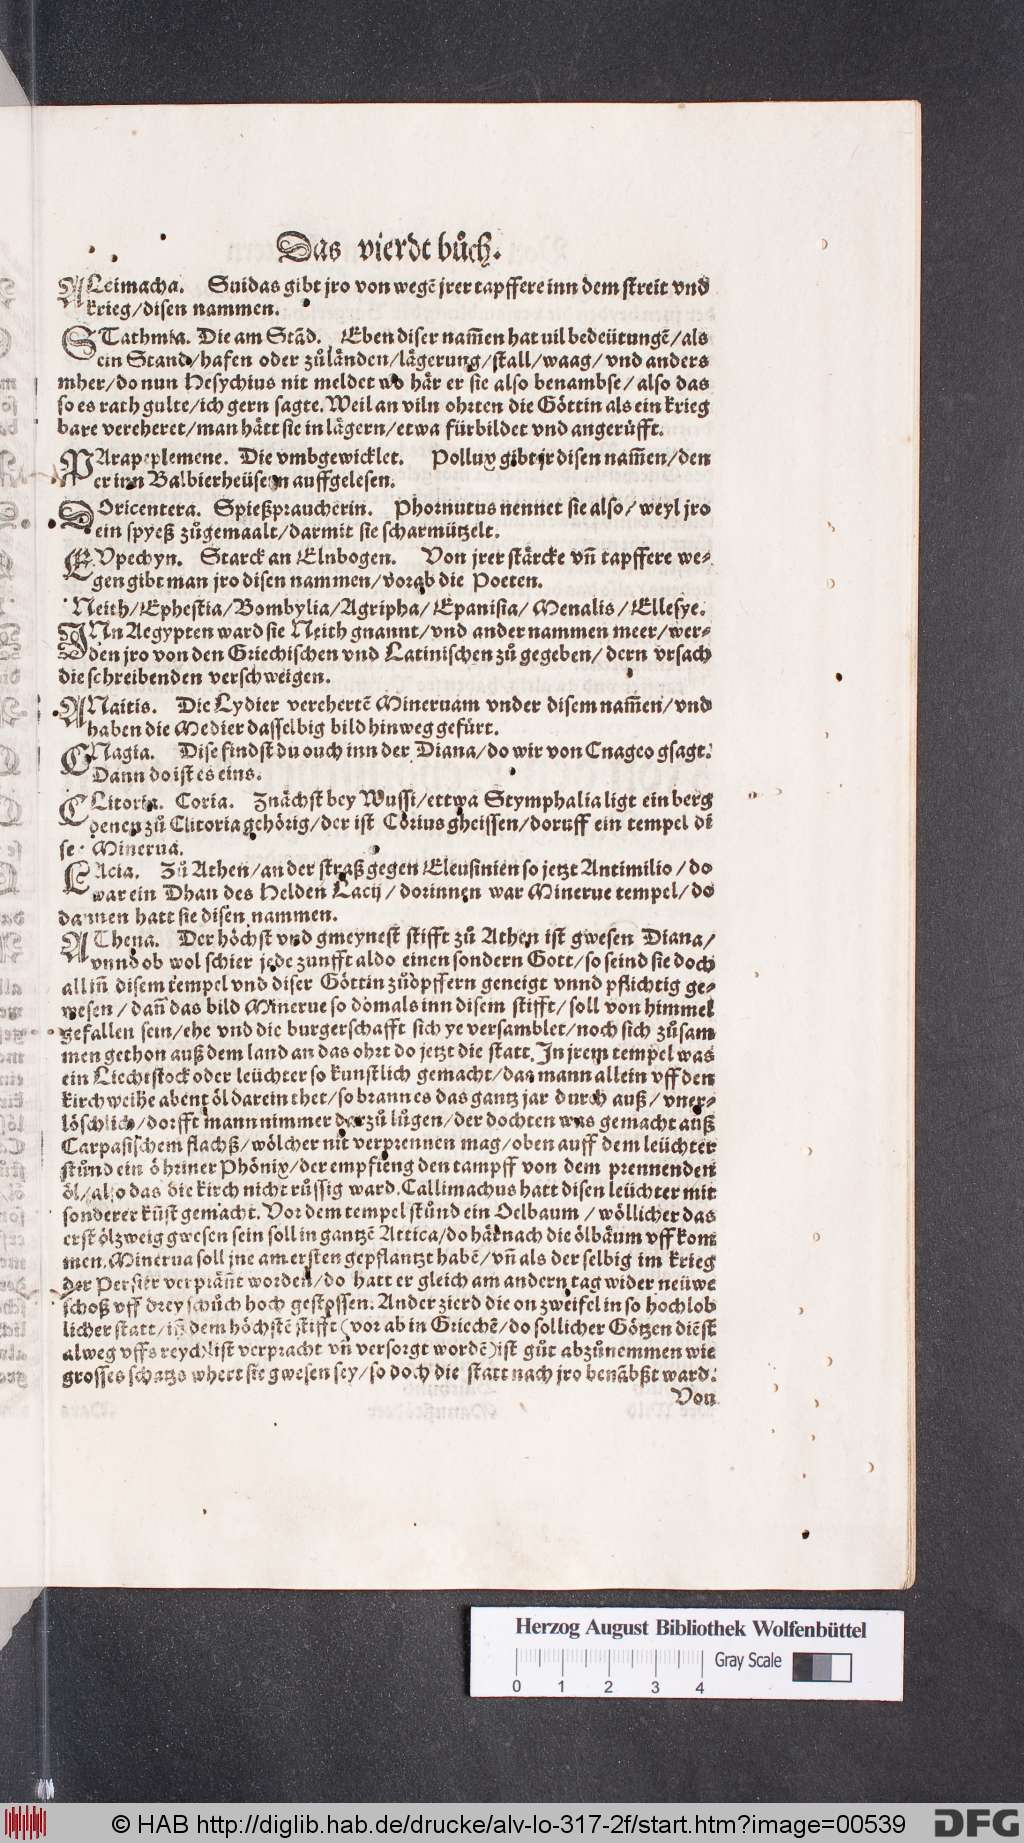 Das vierdt bůch.
ALeimacha. Suidas gibt jro von wegẽ jrer tapffere inn dem streit vnd
krieg/disen nammen.
STathmia. Die am Stãd. Eben diser nam̃en hat uil bedeütungẽ/als
ein Stand/hafen oder zůländen/lägerung/stall/waag/vnd anders
mher/do nun Hesychius nit meldet wo här er sie also benambse/also das
so es rath gulte/ich gern sagte. Weil an viln ohrten die Göttin als ein krieg
bare vereheret/man hätt sie in lägern/etwa fürbildet vnd angerüfft.
PArapeplemene. Die vmbgewicklet. Pollux gibt jr disen nam̃en/den
er inn Balbierheüsern auffgelesen.
DOricentera. Spießpraucherin. Phornutus nennet sie also/weyl jro
ein spyeß zůgemaalt/darmit sie scharmützelt.
EVpechyn. Starck an Elnbogen. Von jrer stärcke vñ tapffere we-
gen gibt man jro disen nammen/vorab die Poeten.
Neith/Ephestia/Bombylia/Agripha/Epanisia/Menalis/Ellesye.
INn Aegypten ward sie Neith gnannt/vnd ander nammen meer/wer-
den jro von den Griechischen vnd Latinischen zů gegeben/dern vrsach
die schreibenden verschweigen.
ANaitis. Die Lydier verehertẽ Mineruam vnder disem nam̃en/vnd
haben die Medier dasselbig bild hinweg gefürt.
CNagia. Dise findst du ouch inn der Diana/do wir von Cnageo gsagt:
Dann do ist es eins.
CLitoria. Coria. Znächst bey Wussi/ettwa Stymphalia ligt ein berg
denen zů Clitoria gehörig/der ist Corius gheissen/doruff ein tempel di
se Minerua.
LAcia. Zů Athen/an der straß gegen Eleusinien so jetzt Antimilio/do
war ein Dhan des Helden Lacij/dorinnen war Minerue tempel/do
dannen hatt sie disen nammen.
AThena. Der höchst vnd gmeynest stifft zů Athen ist gwesen Diana/
vnnd ob wol schier jede zunfft aldo einen sondern Gott/so seind sie doch
all iñ disem tempel vnd diser Göttin zůopffern geneigt vnnd pflichtig ge-
wesen/dañ das bild Minerue so domals inn disem stifft/soll von himmel
gefallen sein/ehe vnd die burgerschafft sich ye versamblet/noch sich zůsam
men gethon auß dem land an das ohrt do jetzt die statt. In jrem tempel was
ein Liechtstock oder leüchter so kunstlich gemacht/das mann allein vff den
kirchweihe abent öl darein thet/so brann es das gantz jar durch auß/vner-
löschlich/dorfft mann nimmer darzů lůgen/der dochten was gemacht auß
Carpasischem flachß/wölcher nit verprennen mag/oben auff dem leüchter
stůnd ein öhriner Phönix/der empfieng den tampff von dem prennenden
öl/also das die kirch nicht růssig ward. Callimachus hatt disen leüchter mit
sonderer kũst gemacht. Vor dem tempel stůnd ein Oelbaum/wöllicher das
erst ölzweig gwesen sein soll in gantzẽ Attica/do härnach die ölbäum vff kom
men. Minerua soll jne am ersten gepflantzt habẽ/vñ als der selbig im krieg
der Persier verpräñt worden/do hatt er gleich am andern tag wider neüwe
schoß vff drey schůch hoch gestossen. Ander zierd die on zweifel in so hochlob
licher statt/iñ dem höchstẽ stifft (vor ab in Griechẽ/do sollicher Götzen diẽst
alweg vffs reychlist verpracht vñ versorgt wordẽ) ist gůt abzůnemmen wie
grosses schatzs whert sie gwesen sey/so doch die statt nach jro benãbßt ward:
Von
Herzog August Bibliothek Wolfenbüttel
Gray Scale
0 1 2 3 4
© HAB http://diglib.hab.de/drucke/alv-lo-317-2f/start.htm?image=00539
DFG